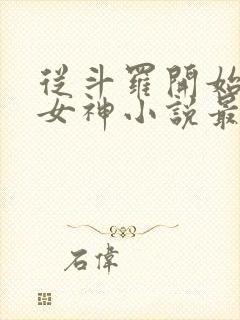 從斗羅開始
女神小說最
石偉